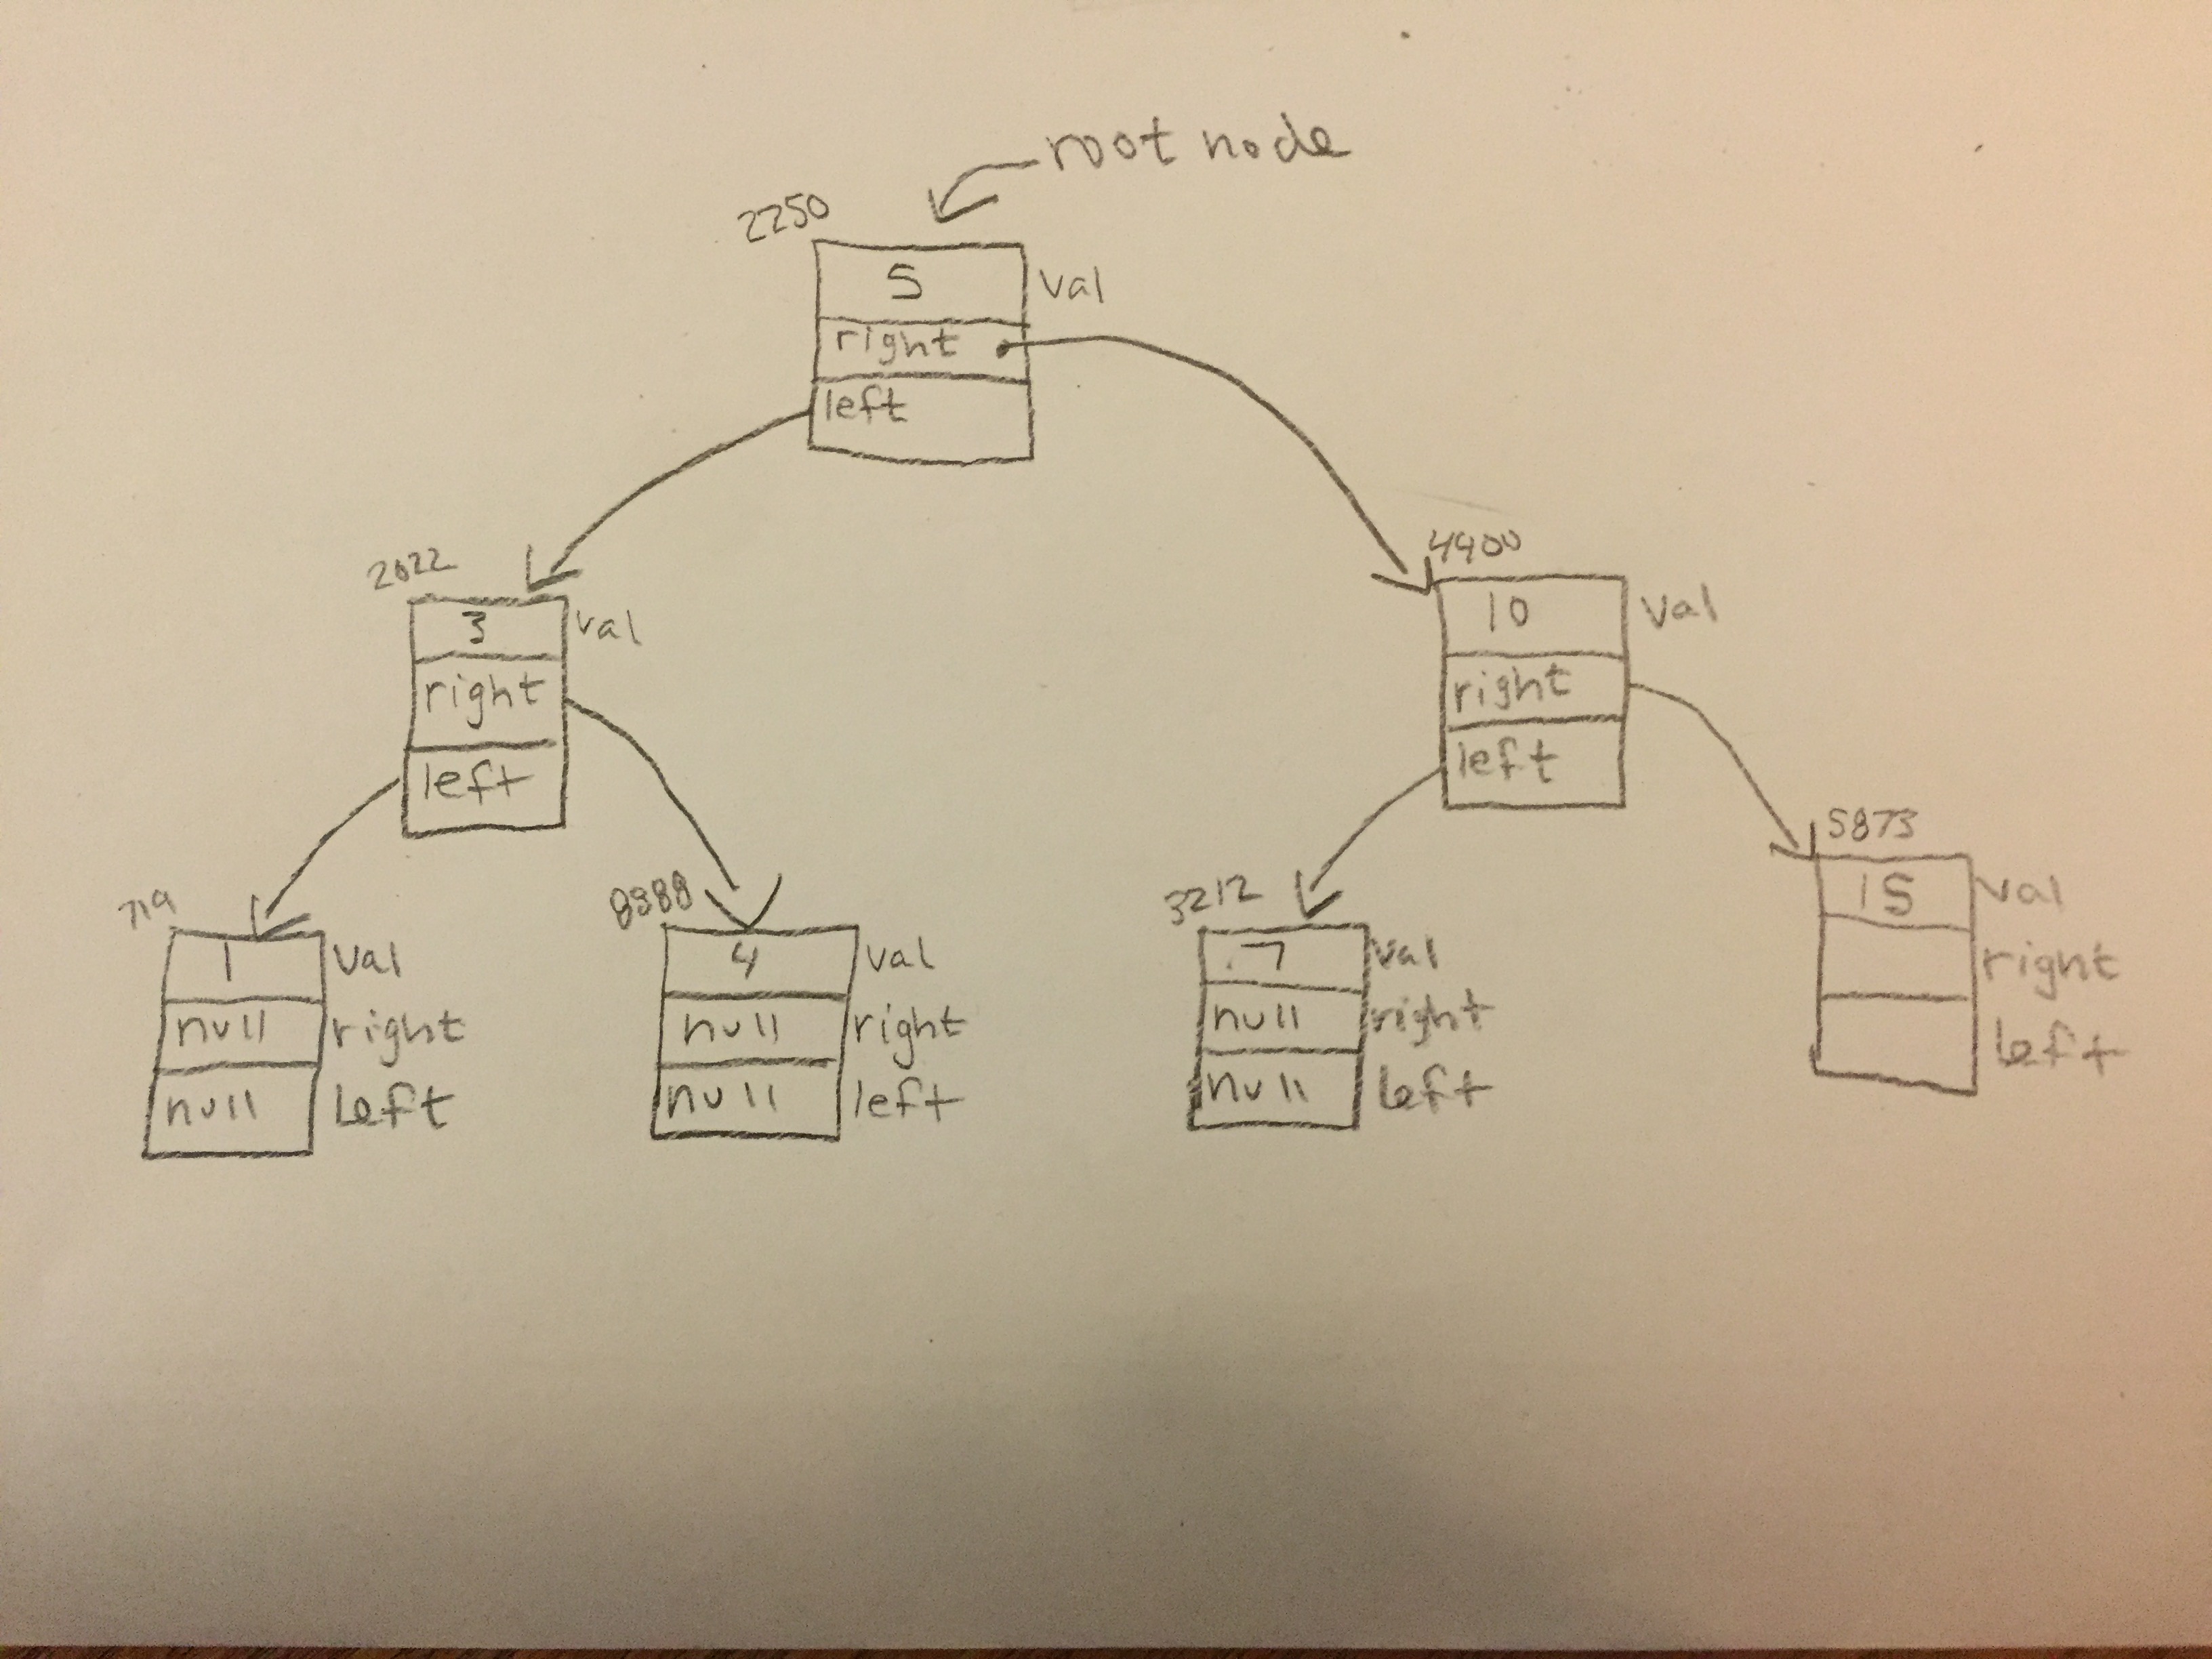 root node
2250
5 val
right
left
2022
3 val
right
left
4400
10 val
right
left
719
1 val
null right
null left
8988
4 val
null right
null left
3212
7 val
null right
null left
5873
15 val
right
left